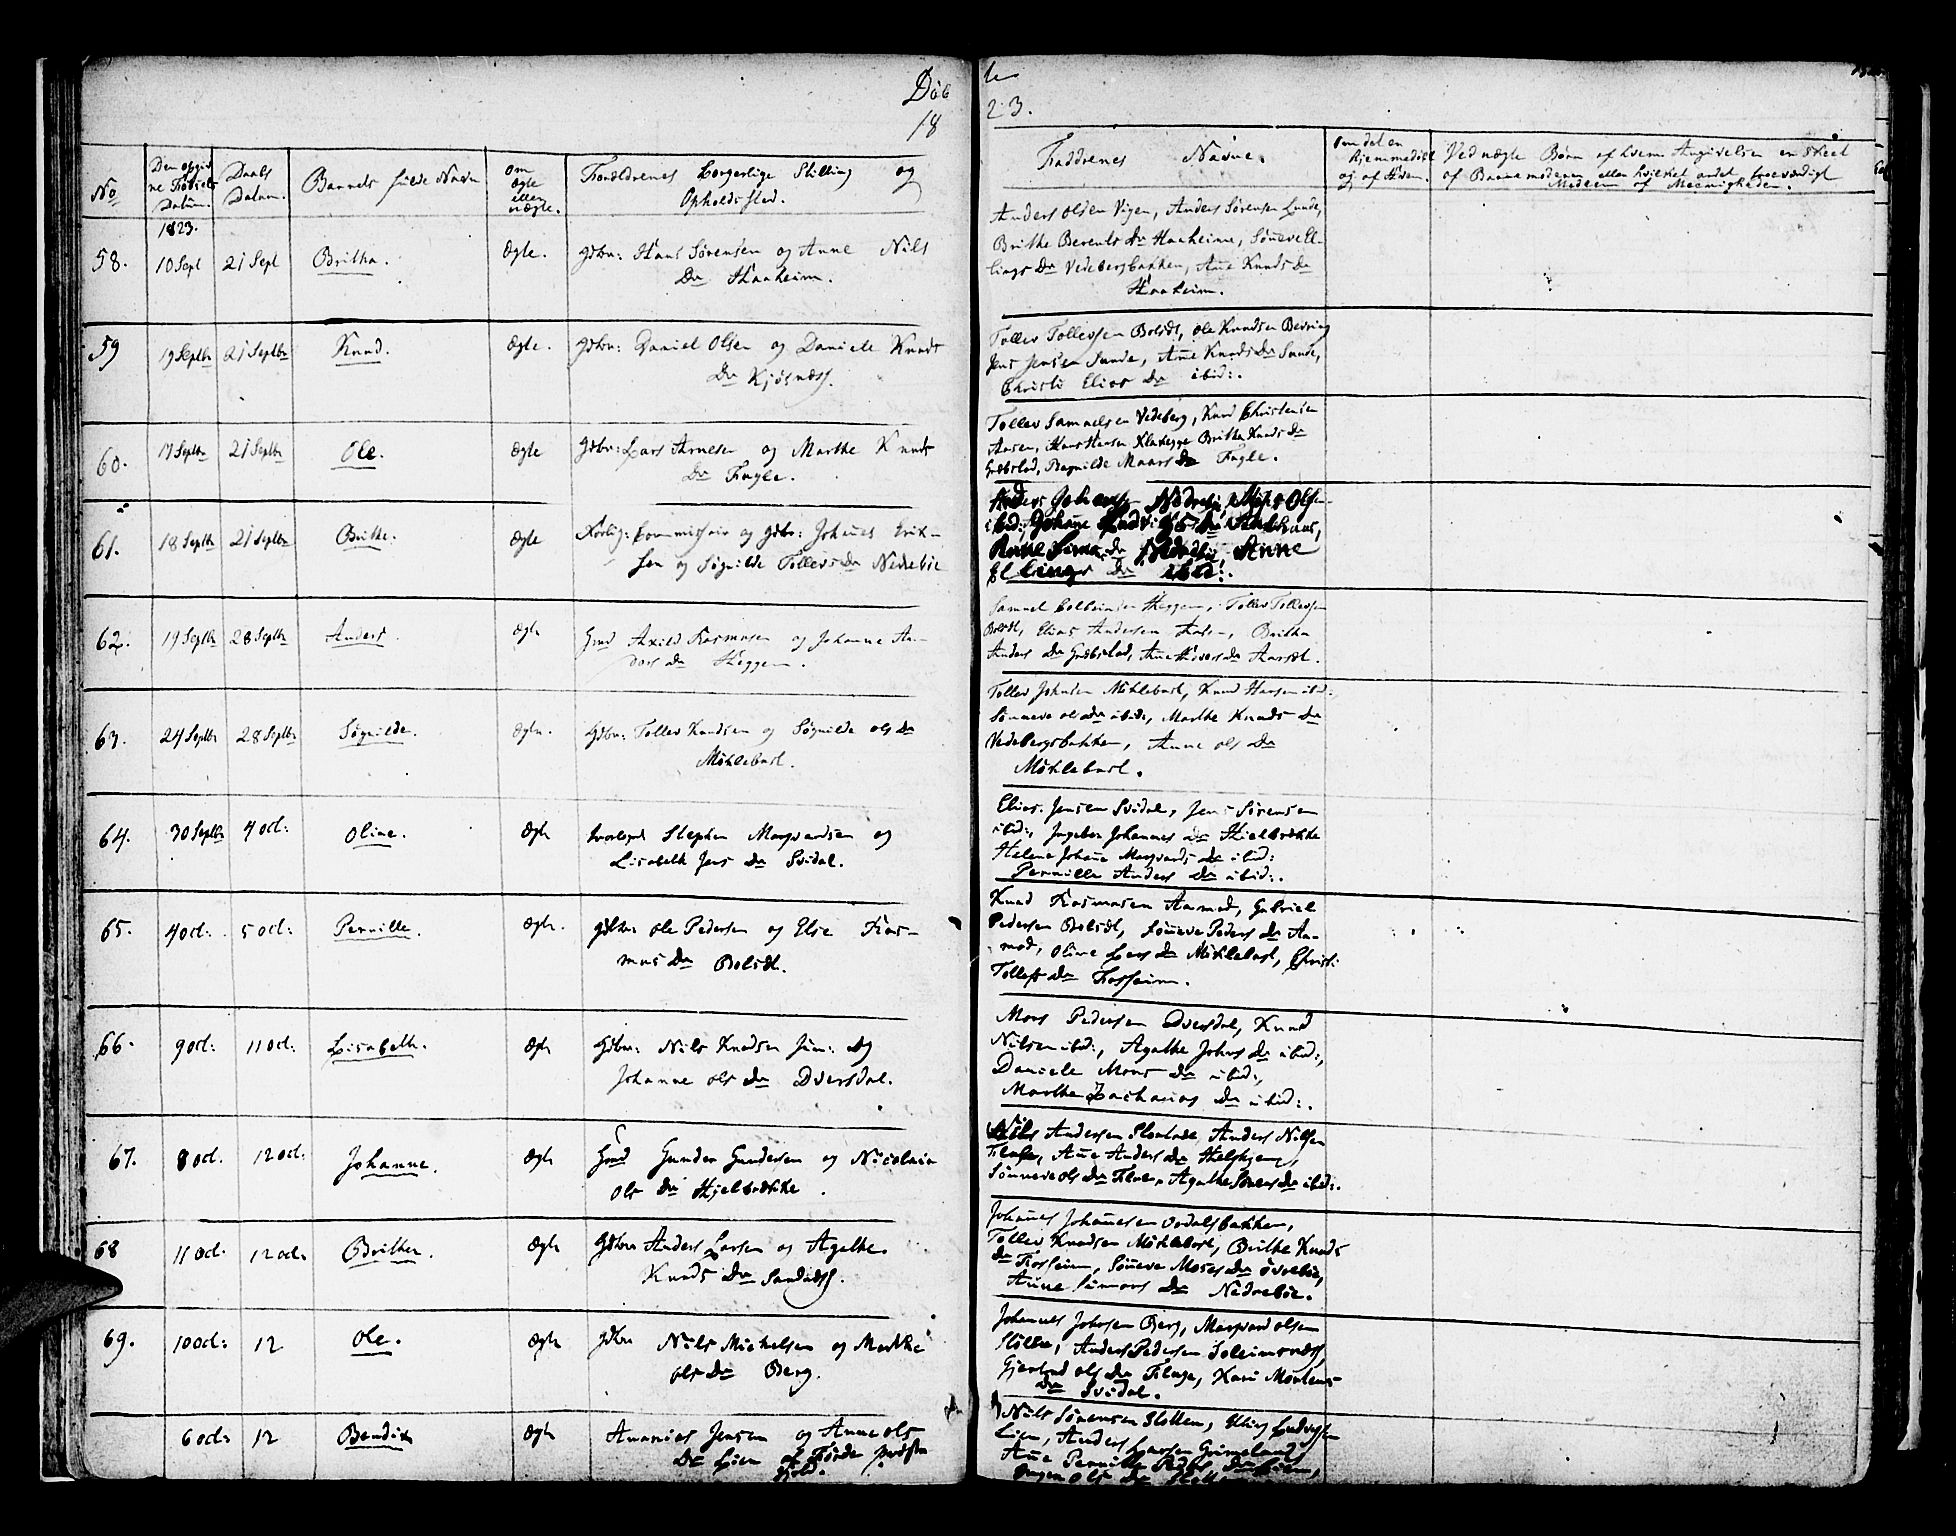 Döb
18
te
23.
No
Den opgivne Fødsels Datum.
Daabs Datum.
Barnets fulde Navn
om ægte eller uægte.
Forældrenes borgerlige Stilling og Opholdssted.
Faddrenes Navne.
om det er hjemmedøbt og af hvem.
Ved uægte Børn af hvem Angivelsen er skeet
af Barnemoderen eller hvilket andet troeværdigt
Medlem af Meenigheden.
1823.
58. 10 Sept 21 Sept Britha. Ægte. Gdbr: Hans Sørensen og Anne Nils
Dr Haaheim.
Anders Olsen Vigen, Anders Sørensen Lunde,
Brithe Berents Dr Haaheim, Sönneve El-
lings Dr Vedebergbakken, Ane Knuds Dr
Haaheim.
59 19 Septbr 21 Septbr Knud. Ægte. Gdbr: Daniel Olsen og Daniele Knuds
Dr Kjøsnæss.
Tollev Tollevsen Bolsæt, Ole Knudsen Bevring
Jens Jensen Sunde, Ane Knuds Dr Sunde,
Christi Elias Dr ibid:.
60. 17 Septbr 21 Septbr Ole. Ægte Gdbr: Lars Arnesen og Marthe Knuds
Dr Fugle.
Tollev Samuelsen Vedeberg, Knud Christensen
Aasen, Hans Hansen Klakegge Britha Knuds Dr
Græbstad, Ragnilde Maars Dr Fugle.
61. 18 Septbr 21 Septbr Brithe. Ægte Forlig: Commissair og Gdbr: Johanes Erik-
sen og Søgnilde Tollevs Dr Nedrebøe
Anne
Ellings Dr ibid:.
62. 19 Septbr 28 Septbr Anders. Ægte Gmd Axild Rasmusen og Johanne An-
ders Dr Heggem.
Tollev Tollevsen
Bolsæt, Elias Andersen Aasen, Britha
Anders Dr Græbstad, Ane Dr Aarsæt.
63. 24 Septbr 28 Septbr Søgnilde. Ægte. Gdbr: Tollev Knudsen og Søgnilde Ols Dr
Möklebust.
Tollev Johnsen Möklebust, Knud Hansen ibid:
Sönneve Ols Dr ibid:, Marthe Knuds Dr
Vedebergsbakken, Anne Ols Dr
Möklebust.
64. 30 Septbr 4 Oct: Oline. Ægte Stephen Maqvardsen og
Lisabeth Jens Dr Svidal.
Elias Jensen Svidal, Jens Sörensen
ibid:, Ingebor Johannes Dr Hielbrække
Helene Johane Maqvards Dr ibid:
Pernille Anders Dr ibid:.
65. 4 Oct: 5 Oct: Pernille. Ægte. Gdbr: Ole Pedersen og Else Ras-
mus Dr Bolsæt.
Knud Rasmusen Aamod, Gabriel
Pedersen Bolsæt, Sönneve Peders Dr Aa-
mod, Oline Lars Dr Möklebust, Christi
Tollefs Dr Fosseim.
66. 9 Oct: 11 Oct: Lisabeth. Ægte Gdbr: Nils Knudsen jun: og
Johanne Ols Dr Dversdal.
Mons Pedersen Dversdal, Knud
Nilsen ibid:, Agathe Johns Dr ibid:,
Daniele Mons Dr ibid:,
Marthe Zacharias Dr ibid:.
67. 8 Oct. 12 Oct: Johanne. Ægte Gmd Gunder Gundersen og Nicolaia
Ols Dr Hjelbrække.
Nils Andersen Anders Nilsen
Fluge, Ane Anders Dr
Sönneve Ols Dr Flue, Agathe Sörens Dr ibid:.
68 11 Oct. 12 Oct: Brithe. Ægte Gdbr: Anders Larsen og Agathe
Knuds Dr Sandnæss.
Johanes Johanesen Ordalsbakken,
Tollev Knudsen Möklebust, Brithe Knuds
Dr Fosseim, Sönneve Moses Dr Övrebøe,
Anne Simons Dr Nedrebøe.
69. 10 Oct: 12 Ole. Ægte Gdbr: Nils Michelsen og Marthe
Ols Dr Berg.
Johannes Johnsen Berg, Maqvard Olsen
Anders Pedersen Soleimsnæss
Gjertrud Ols Dr Fluge, Kari Mortens
Dr Svidal.
6 Oct: 12 Bendix Ægte Ananias Jensen og Anne Ols
Dr Lien af Förde præste
gield.
Nils Sörensen Slotten, Elling Ludvigsen
Lien, Anders Larsen Grimeland
Ane Pernille Peders Dr Lien,
Ols Dr